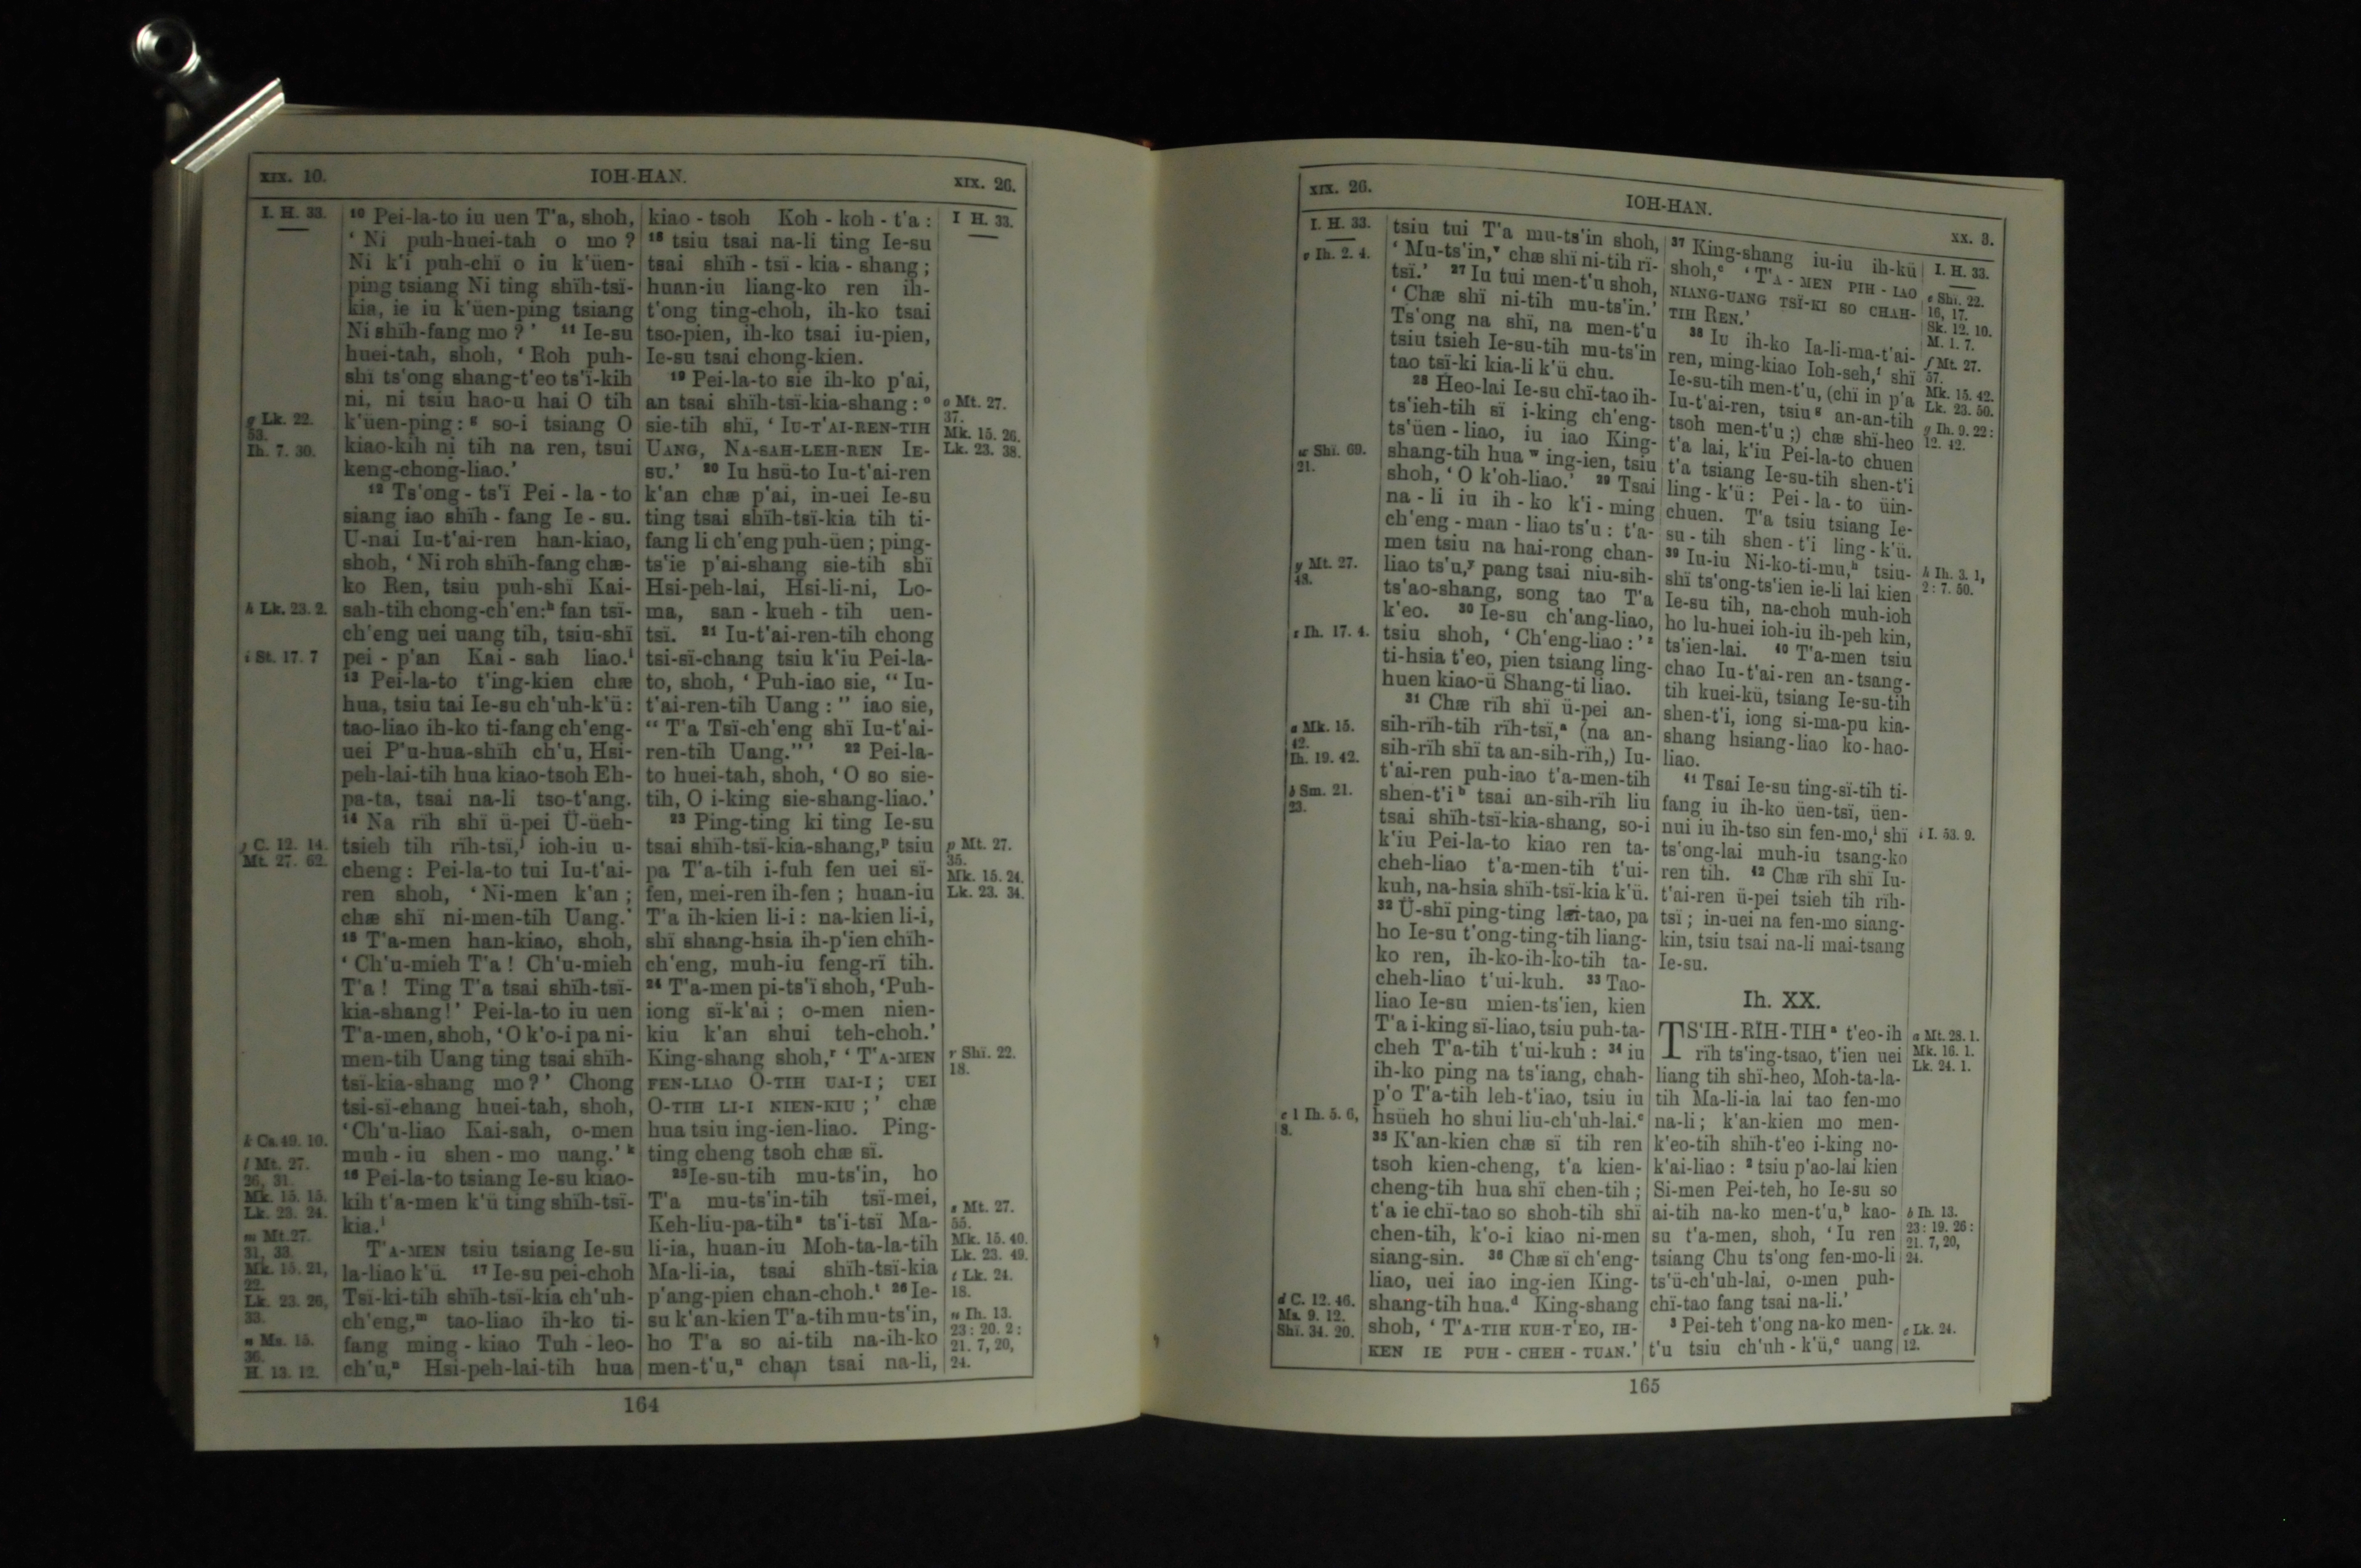 XIX. 10.
IOH-HAN.
XIX. 26.
I. H. 33.
g Lk. 22.
53.
Ih. 7. 30.
h Lk. 23. 2.
i St. 17. 7
j C. 12. 14.
Mt. 27. 62.
k Cs. 49. 10.
l Mt. 27.
26, 31.
Mk. 15. 15.
Lk. 23. 24.
m Mt. 27.
31, 33.
Mk. 15. 21,
22.
Lk. 23. 26,
33.
n Ms. 15.
36.
H. 13. 12.
10 Pei-la-to iu uen T'a, shoh,
‘ Ni puh-huei-tah o mo ?
Ni k'i puh-chï o iu k'üen-
ping tsiang Ni ting shïh-tsï-
kia, ie iu k'üen-ping tsiang
Ni shïh-fang mo ?’ 11 Ie-su
huei-tah, shoh, ‘ Roh puh-
shï ts'ong shang-t'eo ts'ï-kih
ni, ni tsiu hao-u hai O tih
k'üen-ping :g so-i tsiang O
kiao-kih ni tih na ren, tsui
keng-chong-liao.’
12 Ts'ong - ts'ï Pei - la - to
siang iao shïh - fang Ie - su.
U-nai Iu-t'ai-ren han-kiao,
shoh, ‘ Ni roh shïh-fang chæ-
ko Ren, tsiu puh-shï Kai-
sah-tih chong-ch'en:h fan tsï-
ch'eng uei uang tih, tsiu-shï
pei - p'an Kai - sah liao.i
13 Pei-la-to t'ing-kien chæ
hua, tsiu tai Ie-su ch'uh-k'ü:
tao-liao ih-ko ti-fang ch'eng-
uei P'u-hua-shïh ch'u, Hsi-
peh-lai-tih hua kiao-tsoh Eh-
pa-ta, tsai na-li tso-t'ang.
14 Na rïh shï ü-pei Ü-üeh-
tsieh tih rïh-tsï,j ioh-iu u-
cheng: Pei-la-to tui Iu-t'ai-
ren shoh, ‘ Ni-men k'an ;
chæ shï ni-men-tih Uang.’
15 T'a-men han-kiao, shoh,
‘ Ch'u-mieh T'a ! Ch'u-mieh
T'a ! Ting T'a tsai shïh-tsï-
kia-shang!’ Pei-la-to iu uen
T'a-men, shoh, ‘O k'o-i pa ni-
men-tih Uang ting tsai shïh-
tsï-kia-shang mo ?’ Chong
tsi-sï-chang huei-tah, shoh,
‘Ch'u-liao Kai-sah, o-men
muh - iu shen - mo uang.’ k
16 Pei-la-to tsiang Ie-su kiao-
kih t'a-men k'ü ting shïh-tsï-
kia.l
T'A-MEN tsiu tsiang Ie-su
la-liao k'ü. 17 Ie-su pei-choh
Tsï-ki-tih shïh-tsï-kia ch'uh-
ch'eng,m tao-liao ih-ko ti-
fang ming - kiao Tuh - leo-
ch'u,n Hsi-peh-lai-tih hua
kiao - tsoh Koh - koh - t'a :
18 tsiu tsai na-li ting Ie-su
tsai shïh - tsï - kia - shang ;
huan-iu liang-ko ren ih-
t'ong ting-choh, ih-ko tsai
tso-pien, ih-ko tsai iu-pien,
Ie-su tsai chong-kien.
19 Pei-la-to sie ih-ko p'ai,
an tsai shïh-tsï-kia-shang :o
sie-tih shï, ‘ IU-T'AI-REN-TIH
UANG, NA-SAH-LEH-REN IE-
SU.’ 20 Iu hsü-to Iu-t'ai-ren
k'an chæ p'ai, in-uei Ie-su
ting tsai shïh-tsï-kia tih ti-
fang li ch'eng puh-üen ; ping-
ts'ie p'ai-shang sie-tih shï
Hsi-peh-lai, Hsi-li-ni, Lo-
ma, san - kueh - tih uen-
tsï. 21 Iu-t'ai-ren-tih chong
tsi-sï-chang tsiu k'iu Pei-la-
to, shoh, ‘ Puh-iao sie, “ Iu-
t'ai-ren-tih Uang : ” iao sie,
“ T'a Tsï-ch'eng shï Iu-t'ai-
ren-tih Uang.” ’ 22 Pei-la-
to huei-tah, shoh, ‘ O so sie-
tih, O i-king sie-shang-liao.’
23 Ping-ting ki ting Ie-su
tsai shïh-tsï-kia-shang,p tsiu
pa T'a-tih i-fuh fen uei sï-
fen, mei-ren ih-fen ; huan-iu
T'a ih-kien li-i : na-kien li-i,
shï shang-hsia ih-p'ien chïh-
ch'eng, muh-iu feng-rï tih.
24 T'a-men pi-ts'ï shoh, ‘Puh-
iong sï-k'ai ; o-men nien-
kiu k'an shui teh-choh.’
King-shang shoh,r ‘ T'A-MEN
FEN-LIAO O-TIH UAI-I ; UEI
O-TIH LI-I NIEN-KIU ;’ chæ
hua tsiu ing-ien-liao. Ping-
ting cheng tsoh chæ sï.
25 Ie-su-tih mu-ts'in, ho
T'a mu-ts'in-tih tsï-mei,
Keh-liu-pa-tihs ts'i-tsï Ma-
li-ia, huan-iu Moh-ta-la-tih
Ma-li-ia, tsai shïh-tsï-kia
p'ang-pien chan-choh.t 26 Ie-
su k'an-kien T'a-tih mu-ts'in,
ho T'a so ai-tih na-ih-ko
men-t'u,u chan tsai na-li,
I H. 33.
o Mt. 27.
37.
Mk. 15. 26.
Lk. 23. 38.
p Mt. 27.
35.
Mk. 15. 24.
Lk. 23. 34.
r Shï. 22.
18.
s Mt. 27.
55.
Mk. 15. 40.
Lk. 23. 49.
t Lk. 24.
18.
u Ih. 13.
23 : 20. 2 :
21. 7, 20,
24.
164
XIX. 26.
IOH-HAN.
XX. 3.
I. H. 33.
v Ih. 2. 4.
w Shï. 69.
21.
y Mt. 27.
48.
z Ih. 17. 4.
a Mk. 15.
42.
Ih. 19. 42.
b Sm. 21.
23.
c 1 Ih. 5. 6,
8.
d C. 12. 46.
Ms. 9. 12.
Shï. 34. 20.
tsiu tui T'a mu-ts'in shoh,
‘ Mu-ts'in,v chæ shï ni-tih rï-
tsï.’ 27 Iu tui men-t'u shoh,
‘ Chæ shï ni-tih mu-ts'in.’
Ts'ong na shï, na men-t'u
tsiu tsieh Ie-su-tih mu-ts'in
tao tsï-ki kia-li k'ü chu.
28 Heo-lai Ie-su chï-tao ih-
ts'ieh-tih sï i-king ch'eng-
ts'üen - liao, iu iao King-
shang-tih hua w ing-ien, tsiu
shoh, ‘ O k'oh-liao.’ 29 Tsai
na - li iu ih - ko k'i - ming
ch'eng - man - liao ts'u : t'a-
men tsiu na hai-rong chan-
liao ts'u,y pang tsai niu-sih-
ts'ao-shang, song tao T'a
k'eo. 30 Ie-su ch'ang-liao,
tsiu shoh, ‘ Ch'eng-liao : ’z
ti-hsia t'eo, pien tsiang ling-
huen kiao-ü Shang-ti liao.
31 Chæ rïh shï ü-pei an-
sih-rïh-tih rïh-tsï,a (na an-
sih-rïh shï ta an-sih-rïh,) Iu-
t'ai-ren puh-iao t'a-men-tih
shen-t'i b tsai an-sih-rïh liu
tsai shïh-tsï-kia-shang, so-i
k'iu Pei-la-to kiao ren ta-
cheh-liao t'a-men-tih t'ui-
kuh, na-hsia shïh-tsï-kia k'ü.
32 Ü-shï ping-ting lai-tao, pa
ho Ie-su t'ong-ting-tih liang-
ko ren, ih-ko-ih-ko-tih ta-
cheh-liao t'ui-kuh. 33 Tao-
liao Ie-su mien-ts'ien, kien
T'a i-king sï-liao, tsiu puh-ta-
cheh T'a-tih t'ui-kuh : 34 iu
ih-ko ping na ts'iang, chah-
p'o T'a-tih leh-t'iao, tsiu iu
hsüeh ho shui liu-ch'uh-lai.c
35 K'an-kien chæ sï tih ren
tsoh kien-cheng, t'a kien-
cheng-tih hua shï chen-tih ;
t'a ie chï-tao so shoh-tih shï
chen-tih, k'o-i kiao ni-men
siang-sin. 36 Chæ sï ch'eng-
liao, uei iao ing-ien King-
shang-tih hua.d King-shang
shoh, ‘ T'A-TIH KUH-T'EO, IH-
KEN IE PUH - CHEH - TUAN.’
37 King-shang iu-iu ih-kü
shoh,e ‘ T'A - MEN PIH - IAO
NIANG-UANG TSÏ-KI SO CHAH-
TIH REN.’
38 Iu ih-ko Ia-li-ma-t'ai-
ren, ming-kiao Ioh-seh,f shï
Ie-su-tih men-t'u, (chï in p'a
Iu-t'ai-ren, tsiu g an-an-tih
tsoh men-t'u ;) chæ shï-heo
t'a lai, k'iu Pei-la-to chuen
t'a tsiang Ie-su-tih shen-t'i
ling - k'ü : Pei - la - to üin-
chuen. T'a tsiu tsiang Ie-
su - tih shen - t'i ling - k'ü.
39 Iu-iu Ni-ko-ti-mu,h tsiu-
shï ts'ong-ts'ien ie-li lai kien
Ie-su tih, na-choh muh-ioh
ho lu-huei ioh-iu ih-peh kin,
ts'ien-lai. 40 T'a-men tsiu
chao Iu-t'ai-ren an-tsang-
tih kuei-kü, tsiang Ie-su-tih
shen-t'i, iong si-ma-pu kia-
shang hsiang-liao ko-hao-
liao.
41 Tsai Ie-su ting-sï-tih ti-
fang iu ih-ko üen-tsï, üen-
nui iu ih-tso sin fen-mo,i shï
ts'ong-lai muh-iu tsang-ko
ren tih. 42 Chæ rïh shï Iu-
t'ai-ren ü-pei tsieh tih rïh-
tsï ; in-uei na fen-mo siang-
kin, tsiu tsai na-li mai-tsang
Ie-su.
Ih. XX.
TS'IH-RÏH-TIH a t'eo-ih
rïh ts'ing-tsao, t'ien uei
liang tih shï-heo, Moh-ta-la-
tih Ma-li-ia lai tao fen-mo
na-li ; k'an-kien mo men-
k'eo-tih shïh-t'eo i-king no-
k'ai-liao : 2 tsiu p'ao-lai kien
Si-men Pei-teh, ho Ie-su so
ai-tih na-ko men-t'u,b kao-
su t'a-men, shoh, ‘ Iu ren
tsiang Chu ts'ong fen-mo-li
ts'ü-ch'uh-lai, o-men puh-
chï-tao fang tsai na-li.’
3 Pei-teh t'ong na-ko men-
t'u tsiu ch'uh - k'ü,c uang
I. H. 33.
e Shï. 22.
16, 17.
Sk. 12. 10.
M. 1. 7.
f Mt. 27.
57.
Mk. 15. 42.
Lk. 23. 50.
g Ih. 9. 22 :
12. 42.
h Ih. 3. 1,
2 : 7. 50.
i I. 53. 9.
a Mt. 28. 1.
Mk. 16. 1.
Lk. 24. 1.
b Ih. 13.
23 : 19. 26 :
21. 7, 20,
24.
c Lk. 24.
12.
165